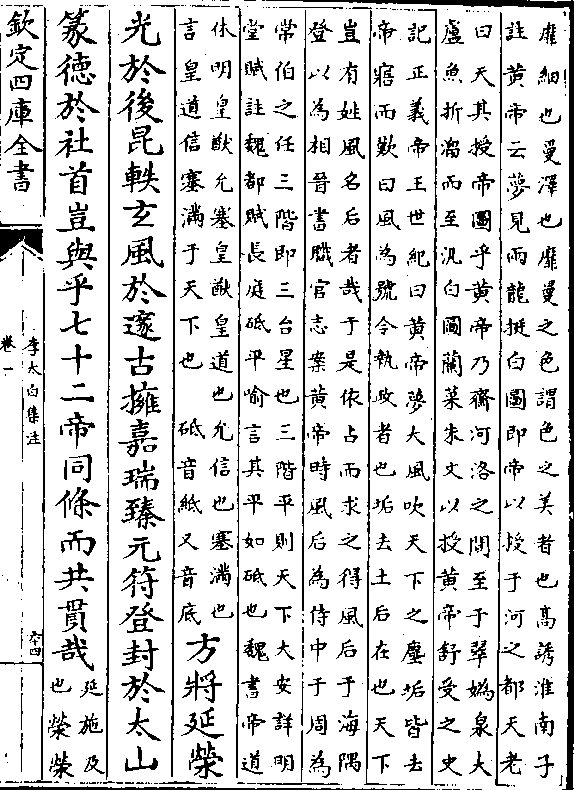 靡細也曼澤也靡曼之色謂色之美者也高誘淮南子
註黄帝云夢見兩龍挺白圖即帝以授于河之都天老
曰天其授帝圖乎黄帝乃齋河洛之間至于翠媯泉大
盧魚折溜而至汎白圖蘭葉朱文以授黄帝舒受之史
記正義帝王世紀曰黄帝夢大風吹天下之塵垢皆去
帝寤而歎曰風為號令執政者也垢去土后在也天下
豈有姓風名后者哉于是依占而求之得風后于海隅
登以為相晉書職官志案黄帝時風后為侍中于周為
常伯之任三階即三台星也三階平則天下大安詳明
堂賦註魏都賦長庭砥平喻言其平如砥也魏書帝道
休明皇猷允塞皇猷皇道也允信也塞滿也
言皇道信塞滿于天下也 砥音紙又音底
方將延榮
光於後昆軼玄風於邃古擁嘉瑞臻元符登封於太山
篆德於社首豈與乎七十二帝同條而共貫哉
延施及
也榮榮
欽定四庫全書
李太白集注
卷一
六十四